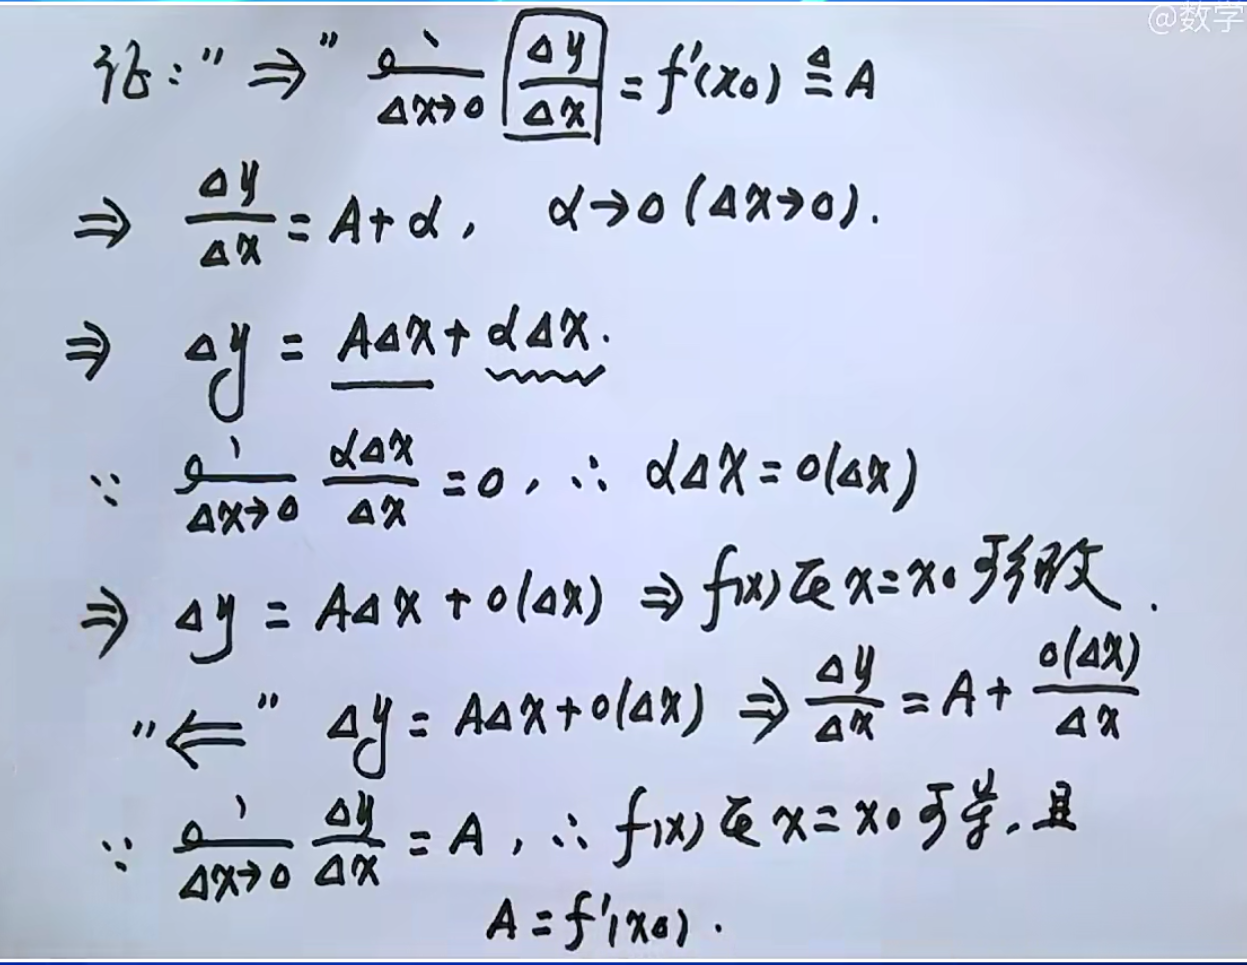 @数学
证："⇒" lim_{Δx→0} Δy/Δx = f'(x₀) ≜ A
⇒ Δy/Δx = A+α, α→0 (Δx→0).
⇒ Δy = AΔx + αΔx.
∵ lim_{Δx→0} αΔx/Δx = 0, ∴ αΔx = o(Δx)
⇒ Δy = AΔx + o(Δx) ⇒ f(x)在x=x₀可微.
"⇐" Δy = AΔx + o(Δx) ⇒ Δy/Δx = A + o(Δx)/Δx
∵ lim_{Δx→0} Δy/Δx = A, ∴ f(x)在x=x₀可导,且
A = f'(x₀).